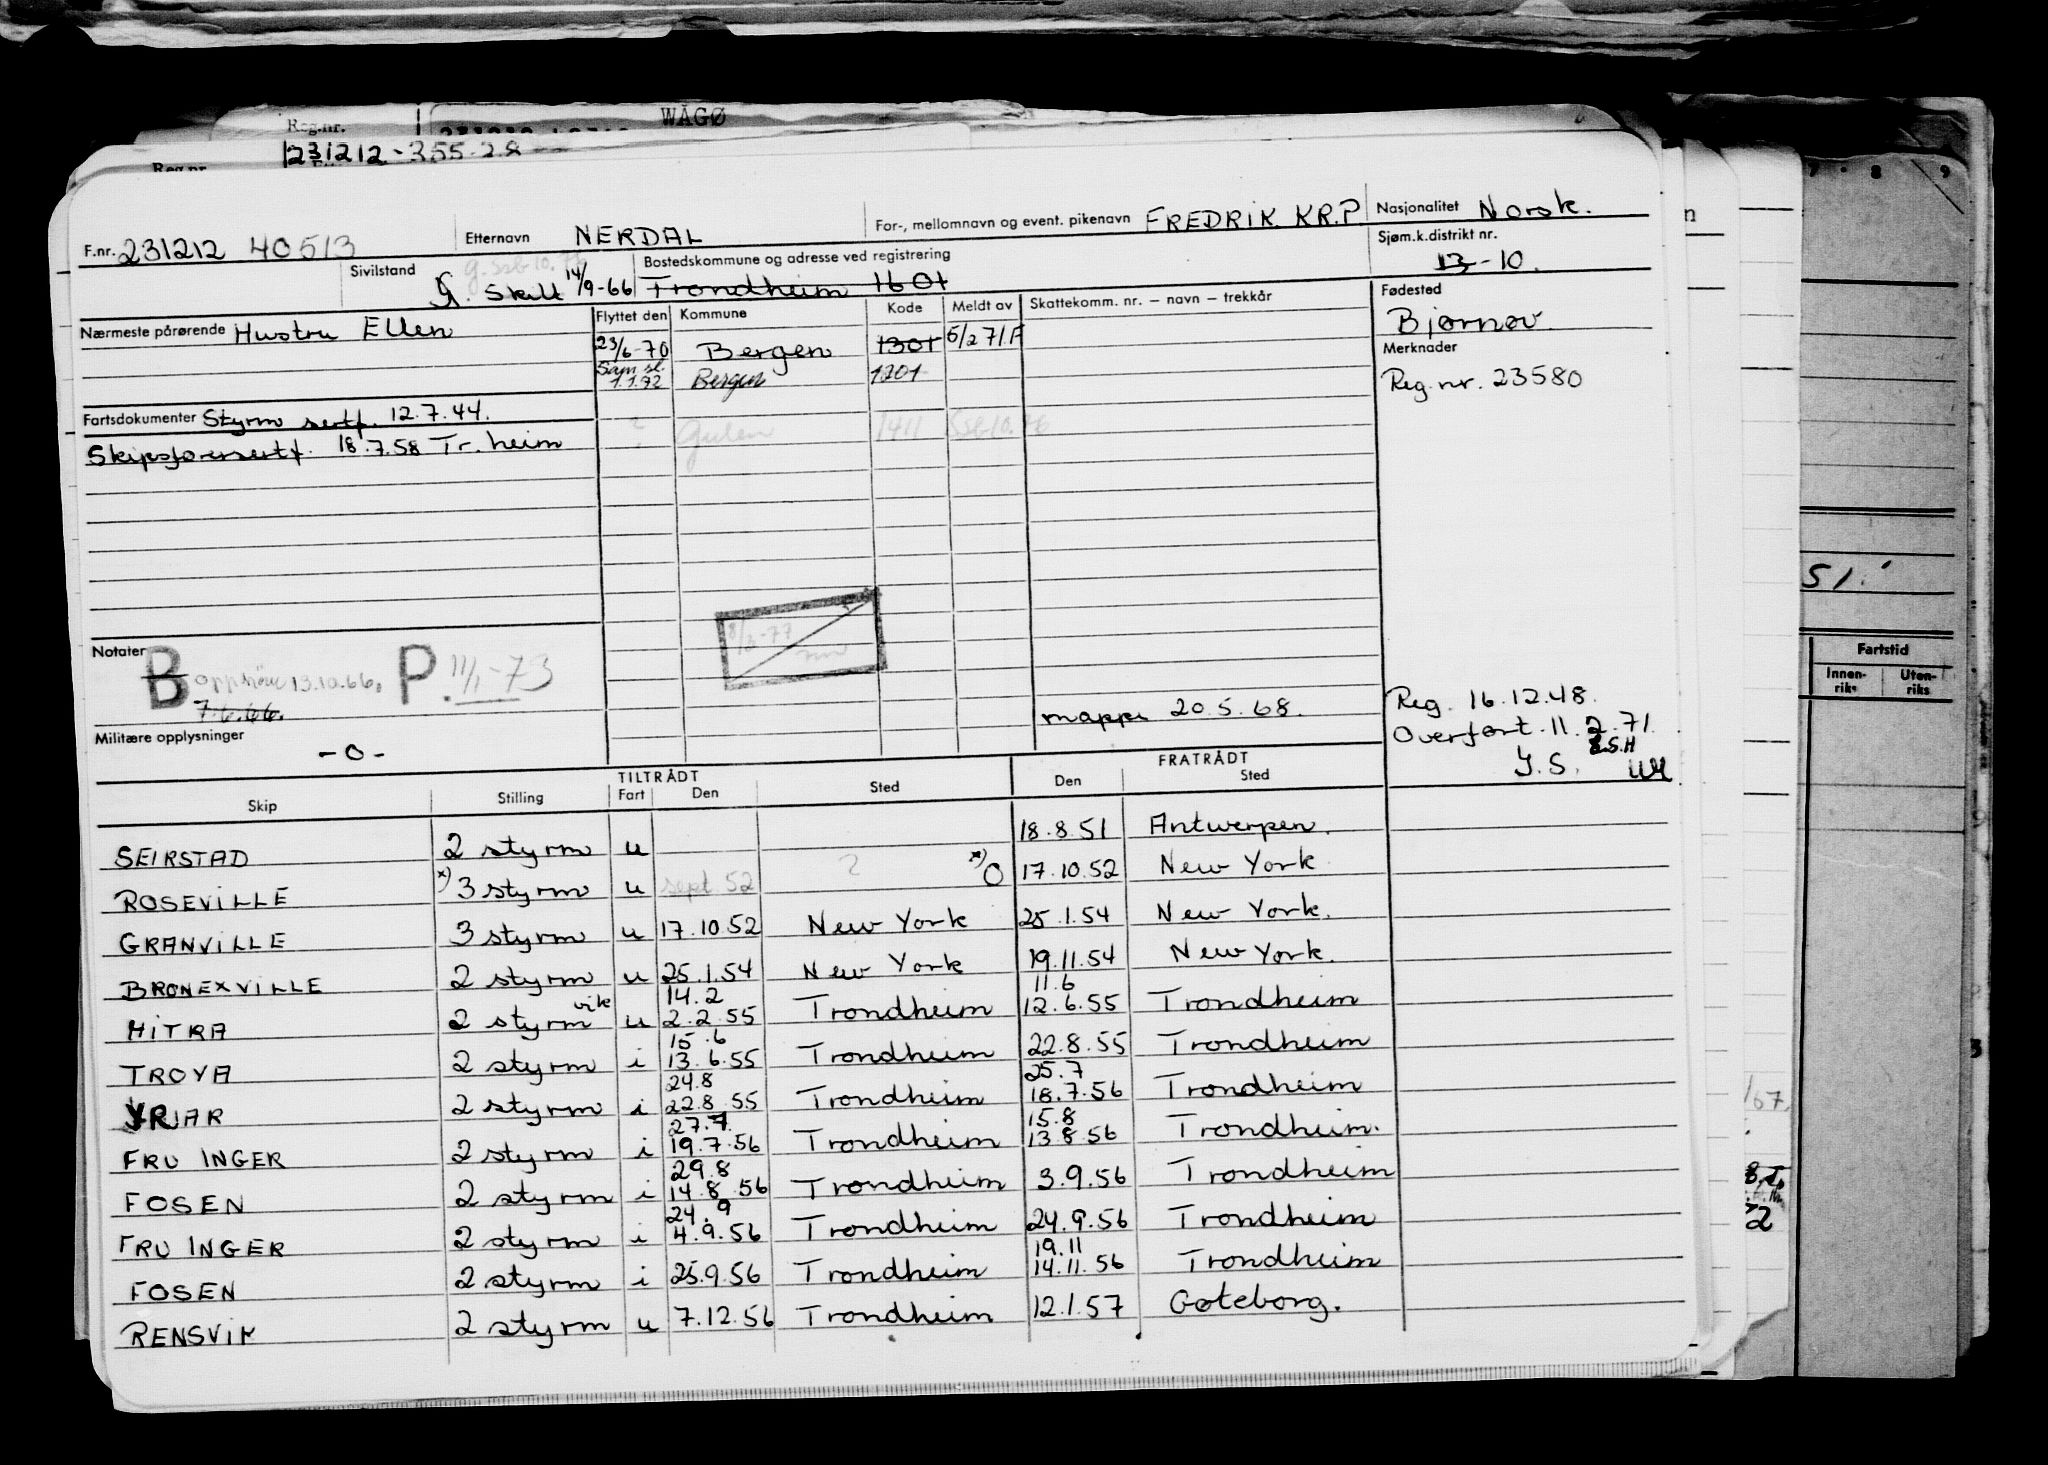 WÅGØ
Reg.nr.
Reg.nr. 231212-355-28
F.nr. 231212 40513 Etternavn NERDAL For-, mellomnavn og event. pikenavn FREDRIK KR.P Nasjonalitet Norsk.
Sivilstand G. Skilt 14/9-66 g. Ssb 10.76 Bostedskommune og adresse ved registrering Trondheim 1601 Sjøm.k.distrikt nr. 13-10.
Nærmeste pårørende Hustru Ellen Flyttet den Kommune Kode Meldt av Skattekomm. nr. – navn – trekkår Fødested
23/6-70 Bergen 1301 5/2 71.F Bjørnør
Sam.sl. 1.1.72 Bergen 1201 Merknader
Reg.nr. 23580
Fartsdokumenter Styrm sertf. 12.7.44. ? Gulen 1411 Ssb 10.76
Skipsførersertf. 18.7.58 Tr.heim
8/3-77
Notater B opphører 13.10.66. P. 11/1-73
7.6.66.
mappe 20.5.68. Reg. 16.12.48.
Overført. 11.2.71.
Militære opplysninger -0- J.S.
TILTRÅDT FRATRÅDT
Skip Stilling Fart Den Sted Den Sted
SEIRSTAD 2 styrm u 18.8.51 Antwerpen.
ROSEVILLE x) 3 styrm u sept 52 ? x) O 17.10.52 New York
GRANVILLE 3 styrm u 17.10.52 New York 25.1.54 New York.
BRONEXVILLE 2 styrm u 25.1.54 New York 19.11.54 New York.
HITRA 2 styrm vik u 14.2 2.2.55 Trondheim 11.6 12.6.55 Trondheim
TROVA 2 styrm i 15.6 13.6.55 Trondheim 22.8.55 Trondheim
YRJAR 2 styrm i 24.8 22.8.55 Trondheim 25.7 18.7.56 Trondheim
FRU INGER 2 styrm i 27.7. 19.7.56 Trondheim 15.8 13.8.56 Trondheim.
FOSEN 2 styrm i 29.8 14.8.56 Trondheim 3.9.56 Trondheim
FRU INGER 2 styrm i 24.9 4.9.56 Trondheim 24.9.56 Trondheim
FOSEN 2 styrm i 25.9.56 Trondheim 19.11 14.11.56 Trondheim
RENSVIK 2 styrm u 7.12.56 Trondheim 12.1.57 Gøteborg.
7 · 8 9
51.
Fartstid
Innen-riks Uten-riks